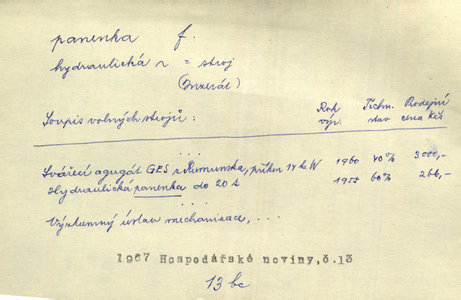 panenka f.
hydraulická r = stroj
(Inzerát)
Soupis volných strojů : Rok výr. Techn. stav Prodejní cena Kčs
...
Svářecí agregát GES z Rumunska, příkon 14 kW 1960 40% 3000,-
Hydraulická panenka do 20 t 1955 60% 266,-
...
Výzkumný ústav mechanisace, ...
1967 Hospodářské noviny,č.13
13 bc